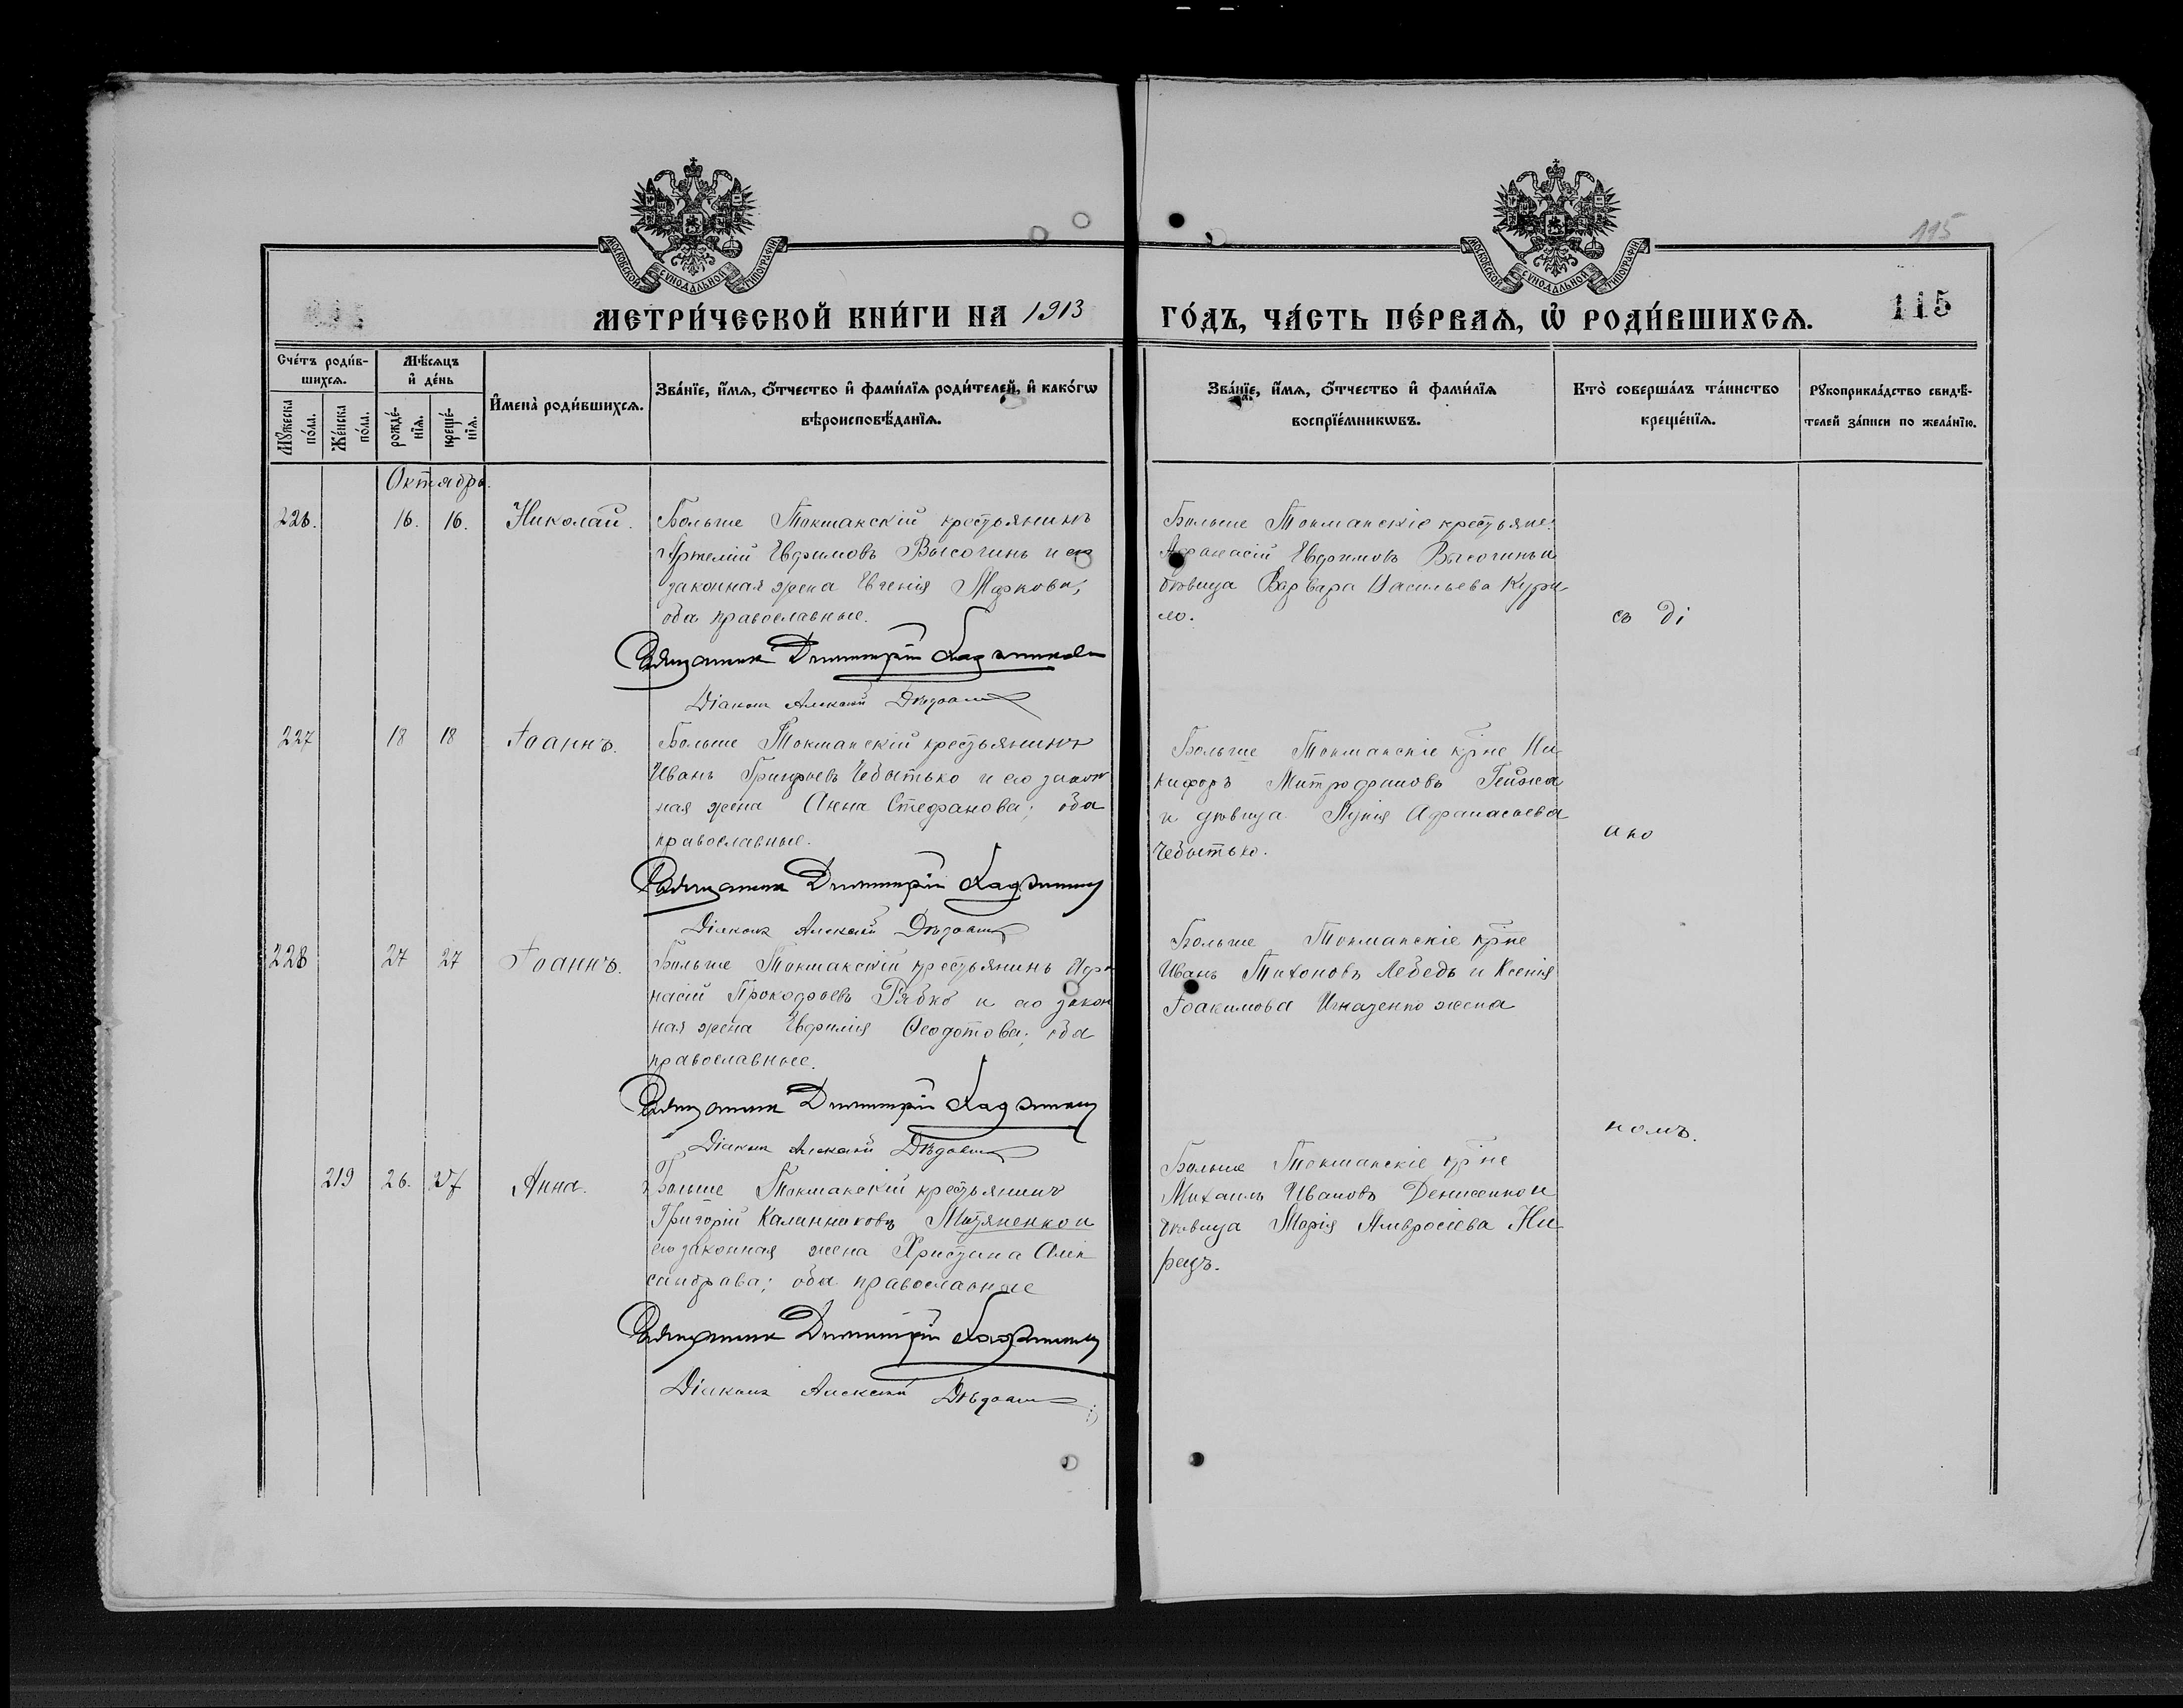 115
МОСКОВСКОЙ СУНОДАЛЬНОЙ ТИПОГРАФІИ
МОСКОВСКОЙ СУНОДАЛЬНОЙ ТИПОГРАФІИ
МЕТРИ́ЧЕСКОЙ КНИ́ГИ НА 1913 ГО́ДЪ, ЧА́СТЬ ПЕ́РВАѦ, Ѡ РОДИ́ВШИХСѦ.
115
Сче́тъ роди́в-
шихсѧ.
Мꙋ́жеска по́ла.
Же́нска по́ла.
Мѣ́сѧцъ
и҆ де́нь
рожде́-
нїѧ.
креще́-
нїѧ.
И҆мена̀ роди́вшихсѧ.
Зва́нїе, и҆́мѧ, ѻ҆́тчество и҆ фами́лїѧ роди́телей, и҆ како́гѡ
вѣроисповѣ́данїѧ.
Зва́нїе, и҆́мѧ, ѻ҆́тчество и҆ фами́лїѧ
воспрїе́мникѡвъ.
Кто̀ соверша́лъ та́инство
креще́нїѧ.
Рꙋкоприкла́дство свидѣ́-
телей за́писи по жела́нїю.
Октябрь.
226. 16. 16. Николай.
Больше Токмакскій крестьянинъ
Артемій Евфимовъ Высочинъ и его
законная жена Евгенія Маркова;
оба православные.
Священникъ Димитрій
Діаконъ Алексій
Больше Токмакскіе крестьяне:
Афанасій Евфимовъ Высочинъ и
дѣвица Варвара Васильева Кури
ло.
съ ді
227 18 18 Іоаннъ.
Больше Токмакскій крестьянинъ
Иванъ Григорьевъ Чебытько и его закон
ная жена Анна Стефанова; оба
православные.
Священникъ Димитрій
Діаконъ Алексій
Больше Токмакскіе кр-не Ни
кифоръ Митрофановъ
и дѣвица Лукія Афанасьева
Чебытько.
ако
228 27 27 Іоаннъ.
Больше Токмакскій крестьянинъ Афа
насій Прокофьевъ Рябко и его закон
ная жена Евфимія Ѳеодотова; оба
православные.
Священникъ Димитрій
Діаконъ Алексій
Больше Токмакскіе кр-не
Иванъ Тихоновъ Лебедь и Ксенія
Іоакимова Игнатенко жена
номъ.
219 26. 27 Анна.
Больше Токмакскій крестьянинъ
Григорій Калинниковъ и
его законная жена Христина Алек
сандрова; оба православные
Священникъ Димитрій
Діаконъ Алексій
Больше Токмакскіе кр-не
Михаилъ Ивановъ Денисенко и
дѣвица Марія Амвросіева Ки
рецъ.